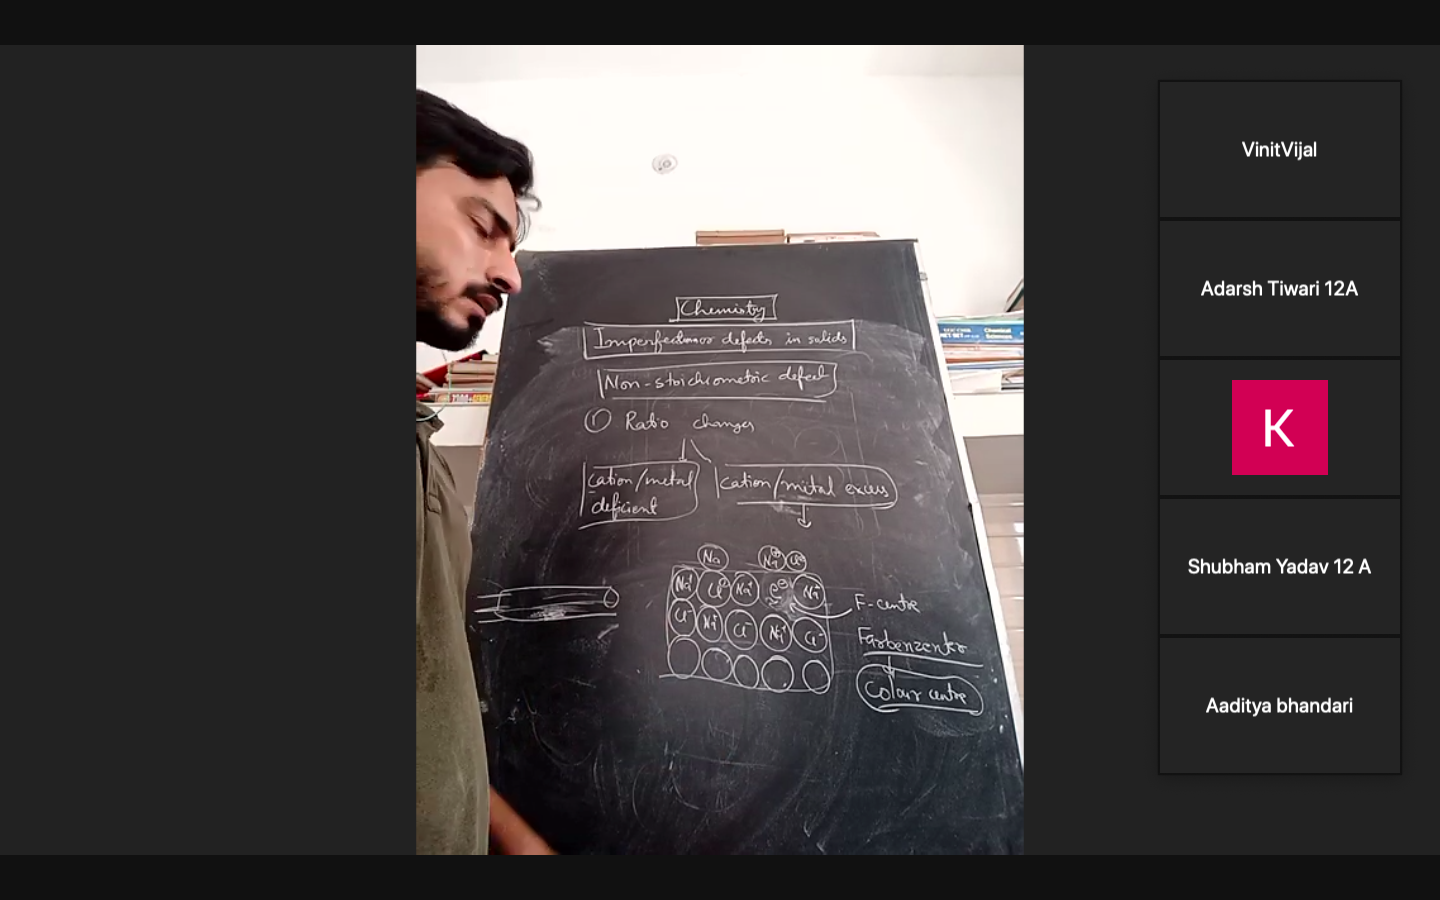 Chemistry
Imperfection or defects in solids
Non-stoichiometric defect
① Ratio changes
Cation/metal deficient
Cation/mital excess
Na Na⊕ Cl⊖
Na⁺ Cl⊖ Na⁺ e⊖ Na⁺
Cl⁻ Na⁺ Cl⁻ Na⁺ Cl⁻
F-centre
Farbenzenter
Colour centre
Chemical
Sciences
VinitVijal
Adarsh Tiwari 12A
K
Shubham Yadav 12 A
Aaditya bhandari